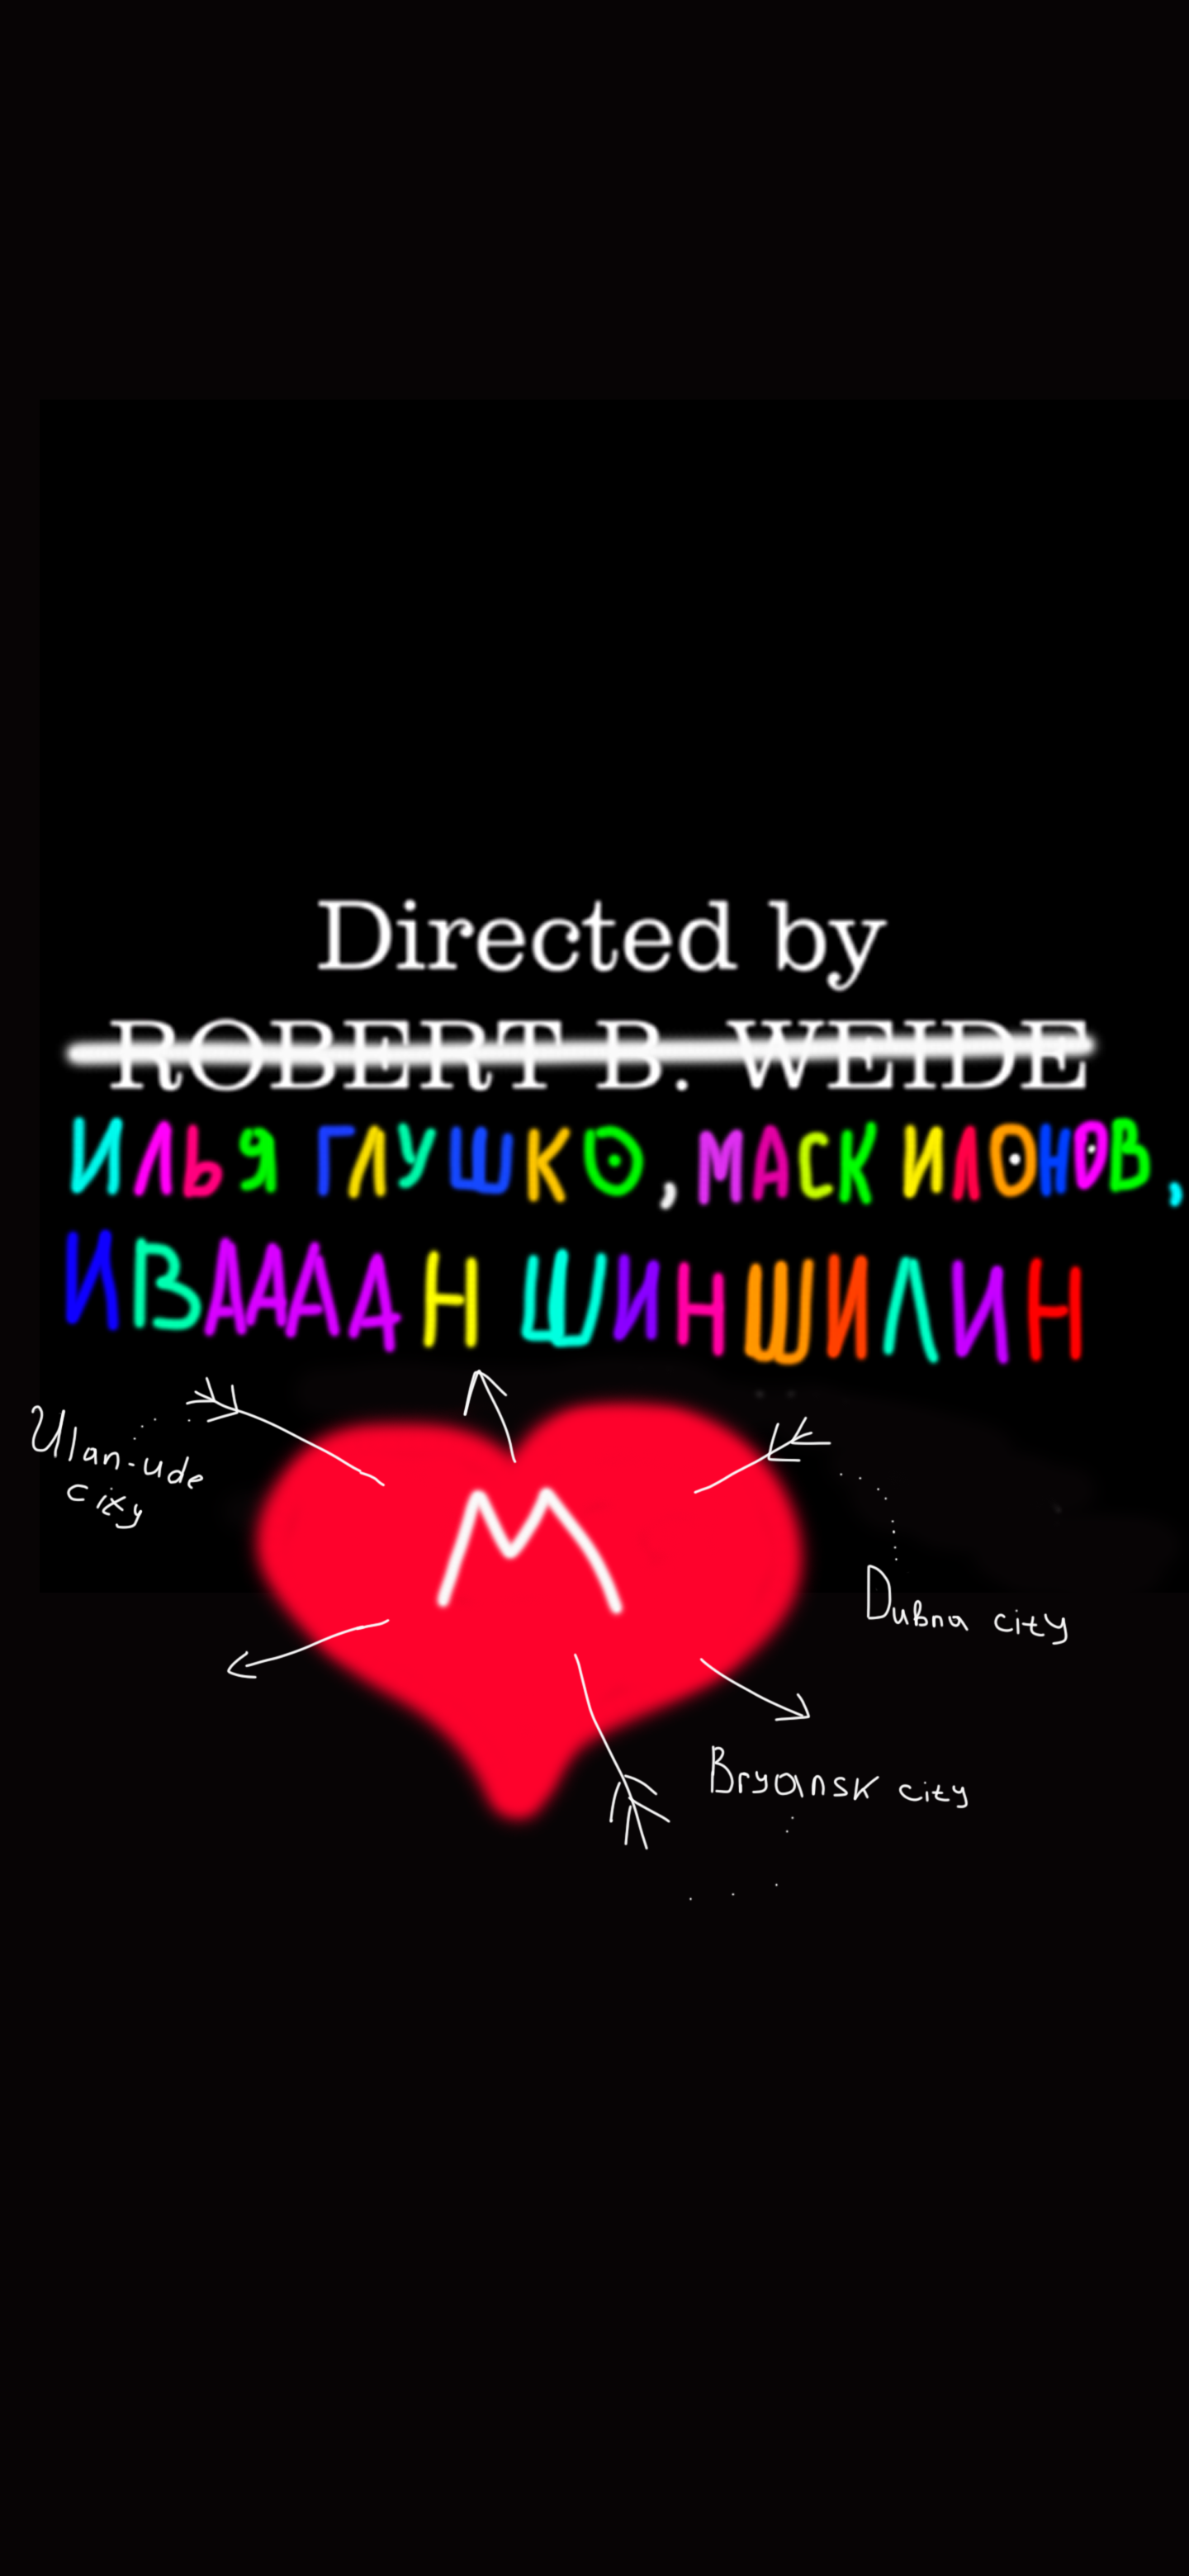 Directed by
ROBERT B. WEIDE
ИЛЬЯ ГЛУШКО, МАСК ИЛОНОВ,
ИВАААAН ШИНШИЛИН
Ulan-ude
city
M
Dubna city
Bryansk city